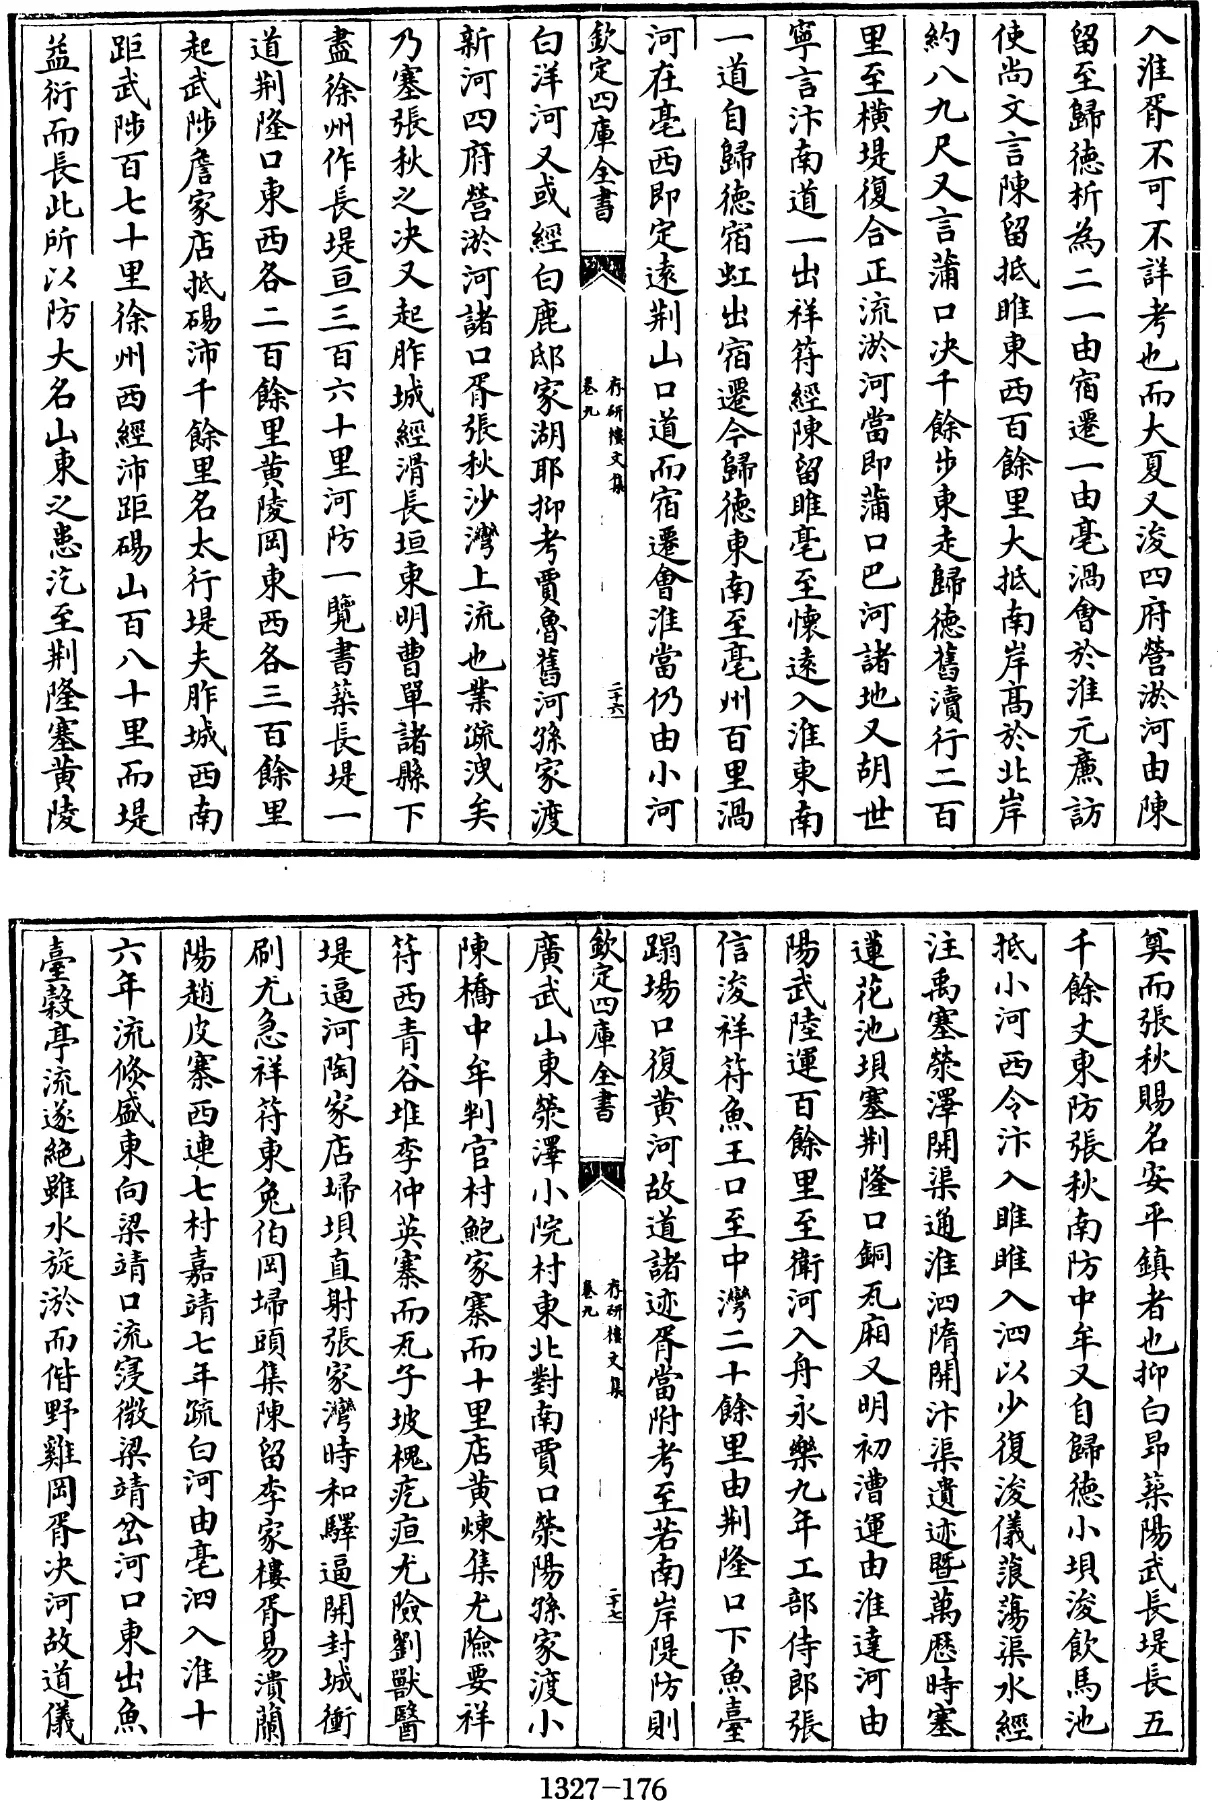 入淮胥不可不詳考也而大夏又浚四府營淤河由陳
留至歸徳析為二一由宿遷一由亳渦會於淮元㢘訪
使尚文言陳留抵睢東西百餘里大抵南岸髙於北岸
約八九尺又言蒲口决千餘步東走歸徳舊瀆行二百
里至横堤復合正流淤河當即蒲口巴河諸地又胡世
寧言汴南道一出祥符經陳留睢亳至懷遠入淮東南
一道自歸徳宿虹出宿遷今歸徳東南至亳州百里渦
河在亳西即定遠荆山口道而宿遷會淮當仍由小河
欽定四庫全書
存研樓文集
卷九
二十六
白洋河又或經白鹿邸家湖耶抑考賈魯舊河孫家渡
新河四府營淤河諸口胥張秋沙灣上流也業疏洩矣
乃塞張秋之决又起胙城經滑長垣東明曹單諸縣下
盡徐州作長堤亘三百六十里河防一覽書築長堤一
道荆隆口東西各二百餘里黄陵岡東西各三百餘里
起武陟詹家店抵碭沛千餘里名太行堤夫胙城西南
距武陟百七十里徐州西經沛距碭山百八十里而堤
益衍而長此所以防大名山東之患汔至荆隆塞黄陵
奠而張秋賜名安平鎮者也抑白昂築陽武長堤長五
千餘丈東防張秋南防中牟又自歸徳小埧浚飲馬池
抵小河西令汴入睢睢入泗以少復浚儀蒗蕩渠水經
注禹塞滎澤開渠通淮泗隋開汴渠遺迹暨萬厯時塞
蓮花池埧塞荆隆口銅瓦廂又明初漕運由淮達河由
陽武陸運百餘里至衛河入舟永樂九年工部侍郎張
信浚祥符魚王口至中灣二十餘里由荆隆口下魚臺
蹋塲口復黄河故道諸迹胥當附考至若南岸隄防則
欽定四庫全書
存研樓文集
卷九
二十七
廣武山東滎澤小院村東北對南賈口滎陽孫家渡小
陳橋中牟判官村鮑家寨而十里店黄煉集尤險要祥
符西青谷堆李仲英寨而瓦子坡槐疙疸尤險劉獸醫
堤逼河陶家店埽埧直射張家灣時和驛逼開封城衝
刷尤急祥符東兔伯岡埽頭集陳留李家樓胥易潰蘭
陽趙皮寨西連七村嘉靖七年疏白河由亳泗入淮十
六年流倐盛東向梁靖口流寖微梁靖岔河口東出魚
臺榖亭流遂絶雖水旋淤而偕野雞岡胥决河故道儀
1327-176